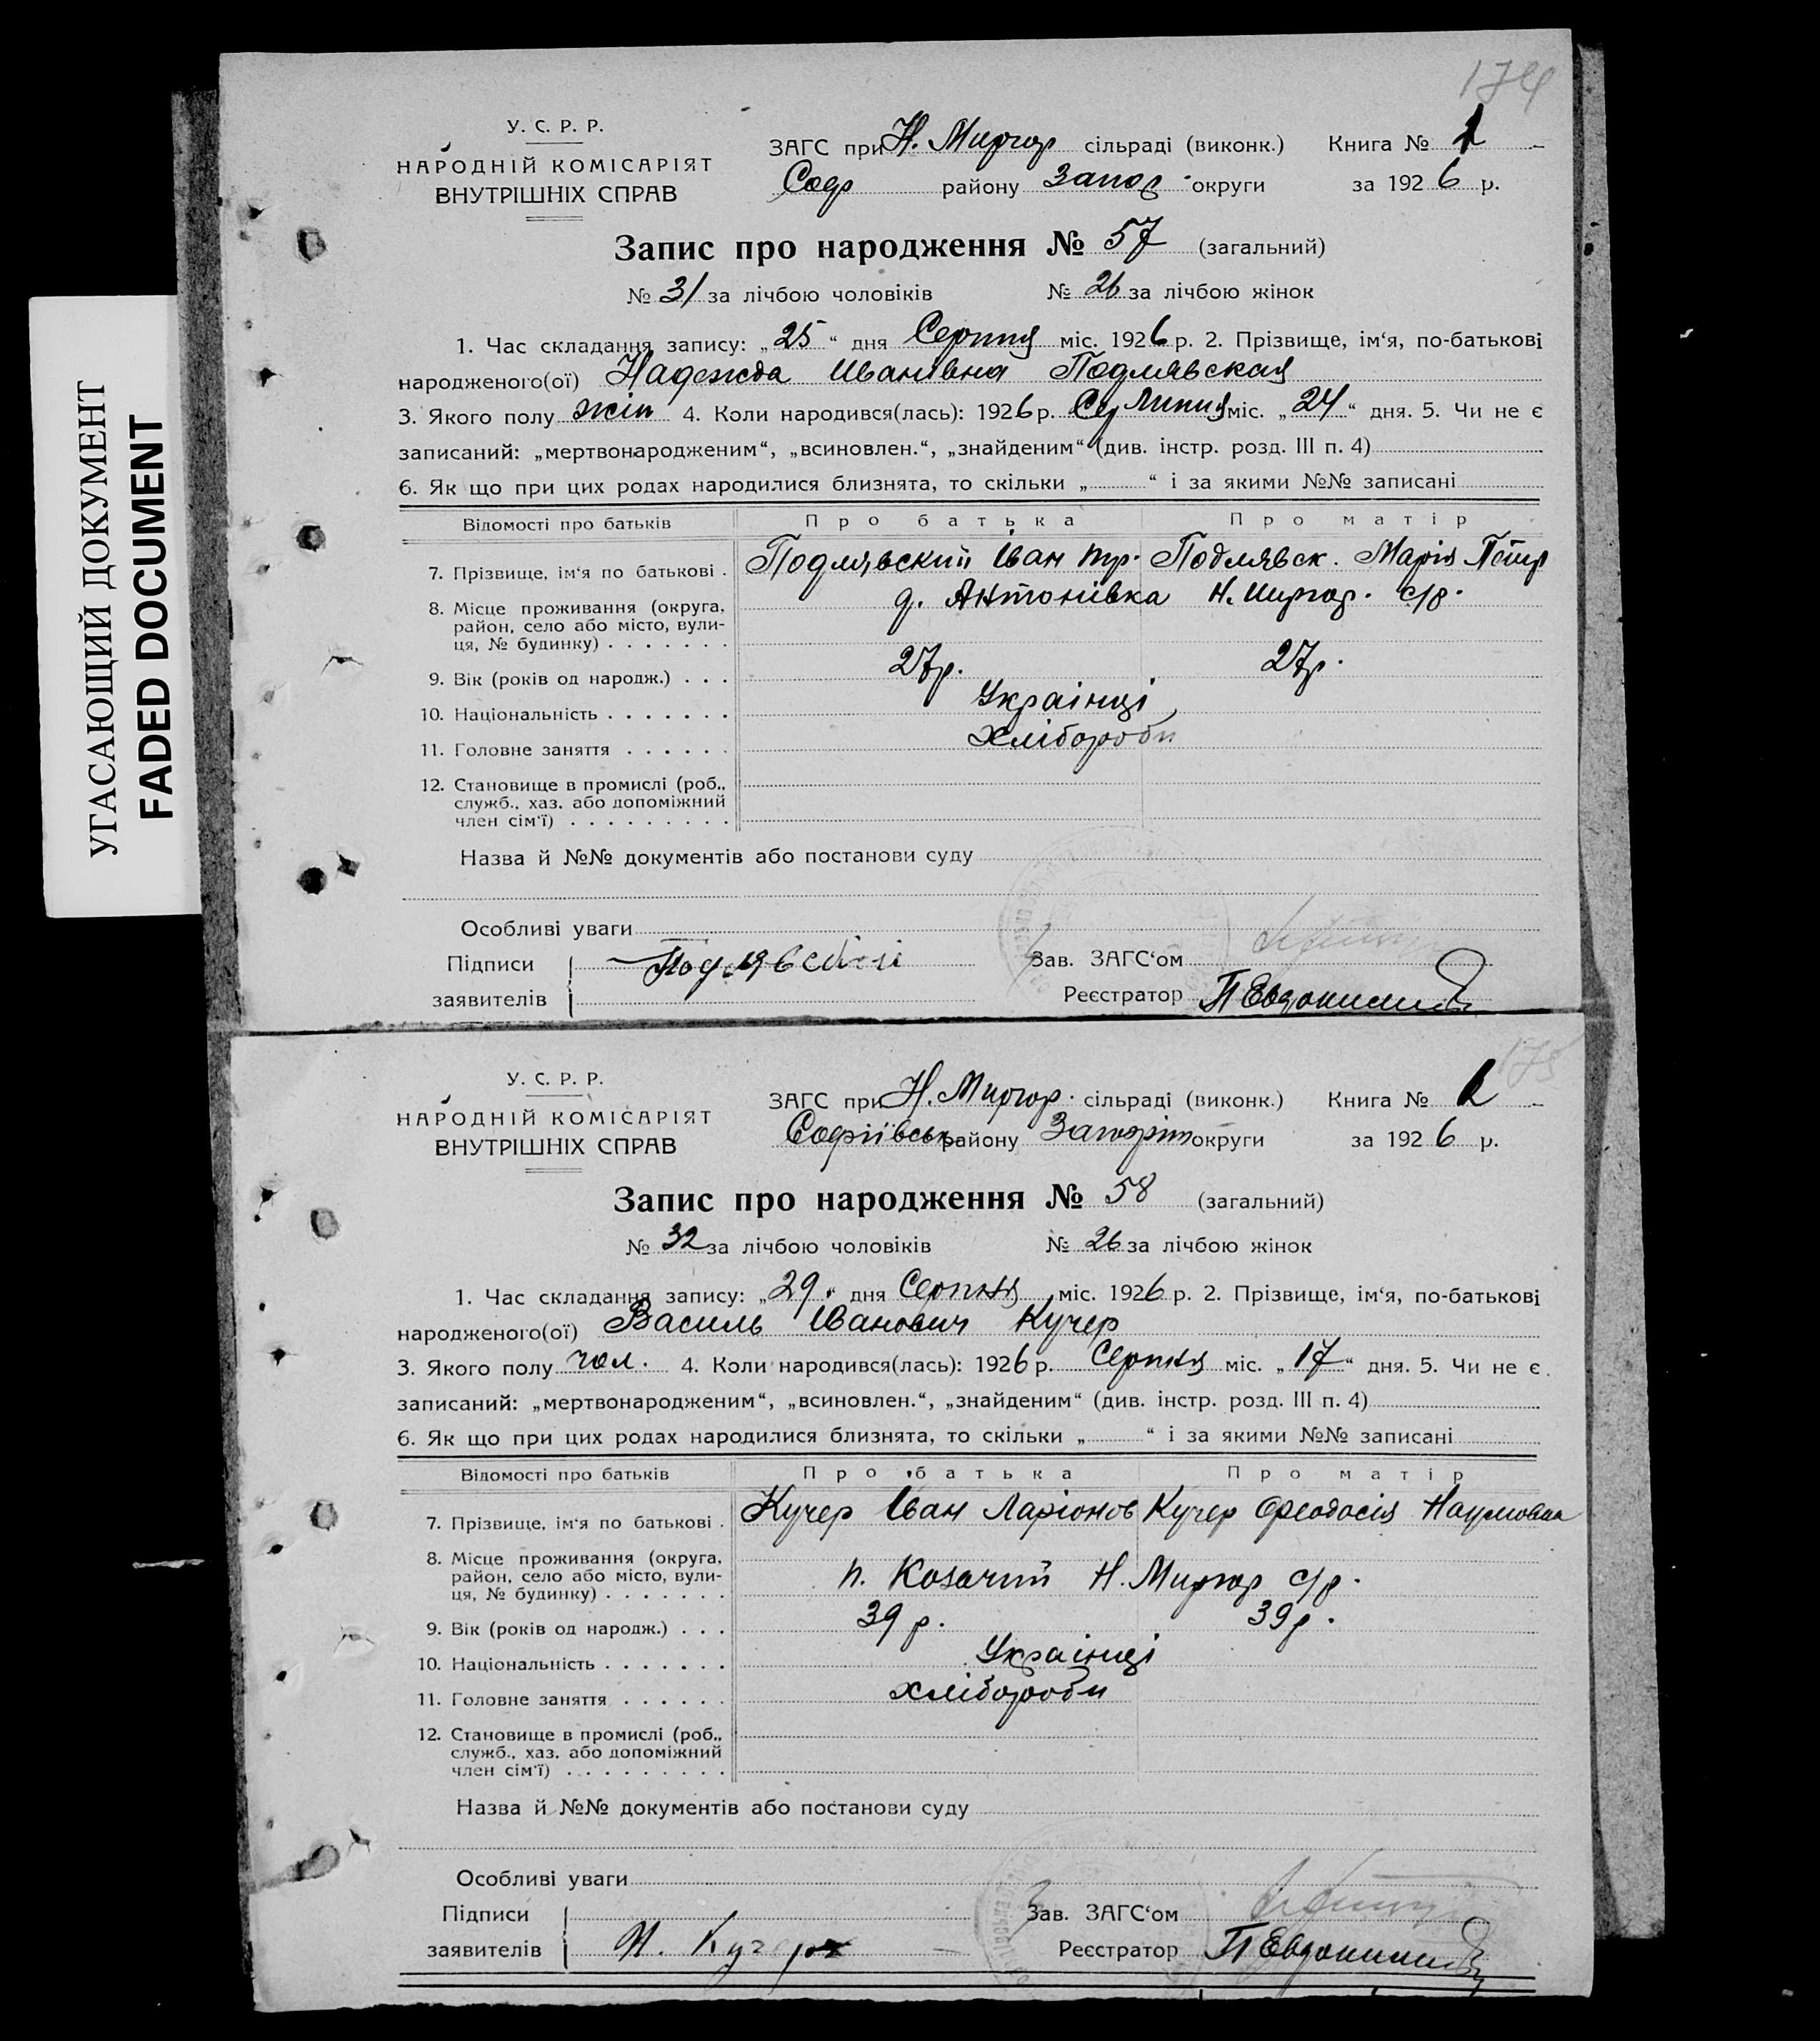 174
УГАСАЮЩИЙ ДОКУМЕНТ
FADED DOCUMENT
У. С. Р. Р.
НАРОДНІЙ КОМІСАРІЯТ
ВНУТРІШНІХ СПРАВ
ЗАГС при Н. Миргор сільраді (виконк.) Книга № 1
Соф району Запор округи за 1926 р.
Запис про народження № 57 (загальний)
№ 31 за лічбою чоловіків № 26 за лічбою жінок
1. Час складання запису: „25“ дня Серпня міс. 1926 р. 2. Прізвище, ім‘я, по-батькові
народженого(ої) Надежда Иванівна Подлявская
3. Якого полу жін 4. Коли народився(лась): 1926 р. Липня міс. „24“ дня. 5. Чи не є
записаний: „мертвонародженим“, „всиновлен.“, „знайденим“ (див. інстр. розд. III п. 4)
6. Як що при цих родах народилися близнята, то скільки „ “ і за якими №№ записані
Відомості про батьків Про батька Про матір
7. Прізвище, ім‘я по батькові . Подлявский Іван Подлявск. Марія Петр
8. Місце проживання (округа, д. Антонівка Н. Миргор. с/р.
район, село або місто, вули-
ця, № будинку) . . . . . . .
9. Вік (років од народж.) . . . 27р. 27р.
10. Національність . . . . . . . Українці
11. Головне заняття . . . . . . Хлібороби
12. Становище в промислі (роб.,
служб., хаз. або допоміжний
член сім‘ї) . . . . . . . . .
Назва й №№ документів або постанови суду
Особливі уваги
Підписи Зав. ЗАГС‘ом
заявителів Реєстратор П Евдокимов
175
У. С. Р. Р.
НАРОДНІЙ КОМІСАРІЯТ
ВНУТРІШНІХ СПРАВ
ЗАГС при Н. Миргор. сільраді (виконк.) Книга № 1
Софіївськ району Запоріж округи за 1926 р.
Запис про народження № 58 (загальний)
№ 32 за лічбою чоловіків № 26 за лічбою жінок
1. Час складання запису: „29“ дня Серпня міс. 1926 р. 2. Прізвище, ім‘я, по-батькові
народженого(ої) Василь Іванович Кучер
3. Якого полу чол. 4. Коли народився(лась): 1926 р. Серпня міс. „17“ дня. 5. Чи не є
записаний: „мертвонародженим“, „всиновлен.“, „знайденим“ (див. інстр. розд. III п. 4)
6. Як що при цих родах народилися близнята, то скільки „ “ і за якими №№ записані
Відомості про батьків Про батька Про матір
7. Прізвище, ім‘я по батькові . Кучер Іван Ларіонов Кучер Феодосія Наумовна
8. Місце проживання (округа,
район, село або місто, вули- п. Козачий Н. Миргор с/р.
ця, № будинку) . . . . . . .
9. Вік (років од народж.) . . . 39 р. 39р.
10. Національність . . . . . . . Українці
11. Головне заняття . . . . . . хлібороби
12. Становище в промислі (роб.,
служб., хаз. або допоміжний
член сім‘ї) . . . . . . . . .
Назва й №№ документів або постанови суду
Особливі уваги
Підписи Зав. ЗАГС‘ом
заявителів И. Кучер Реєстратор П Евдокимов